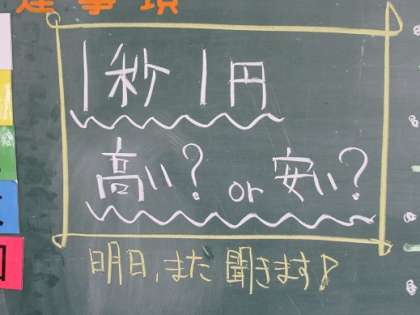 達事項
1秒1円
高い? or 安い?
明日、また聞きます♪